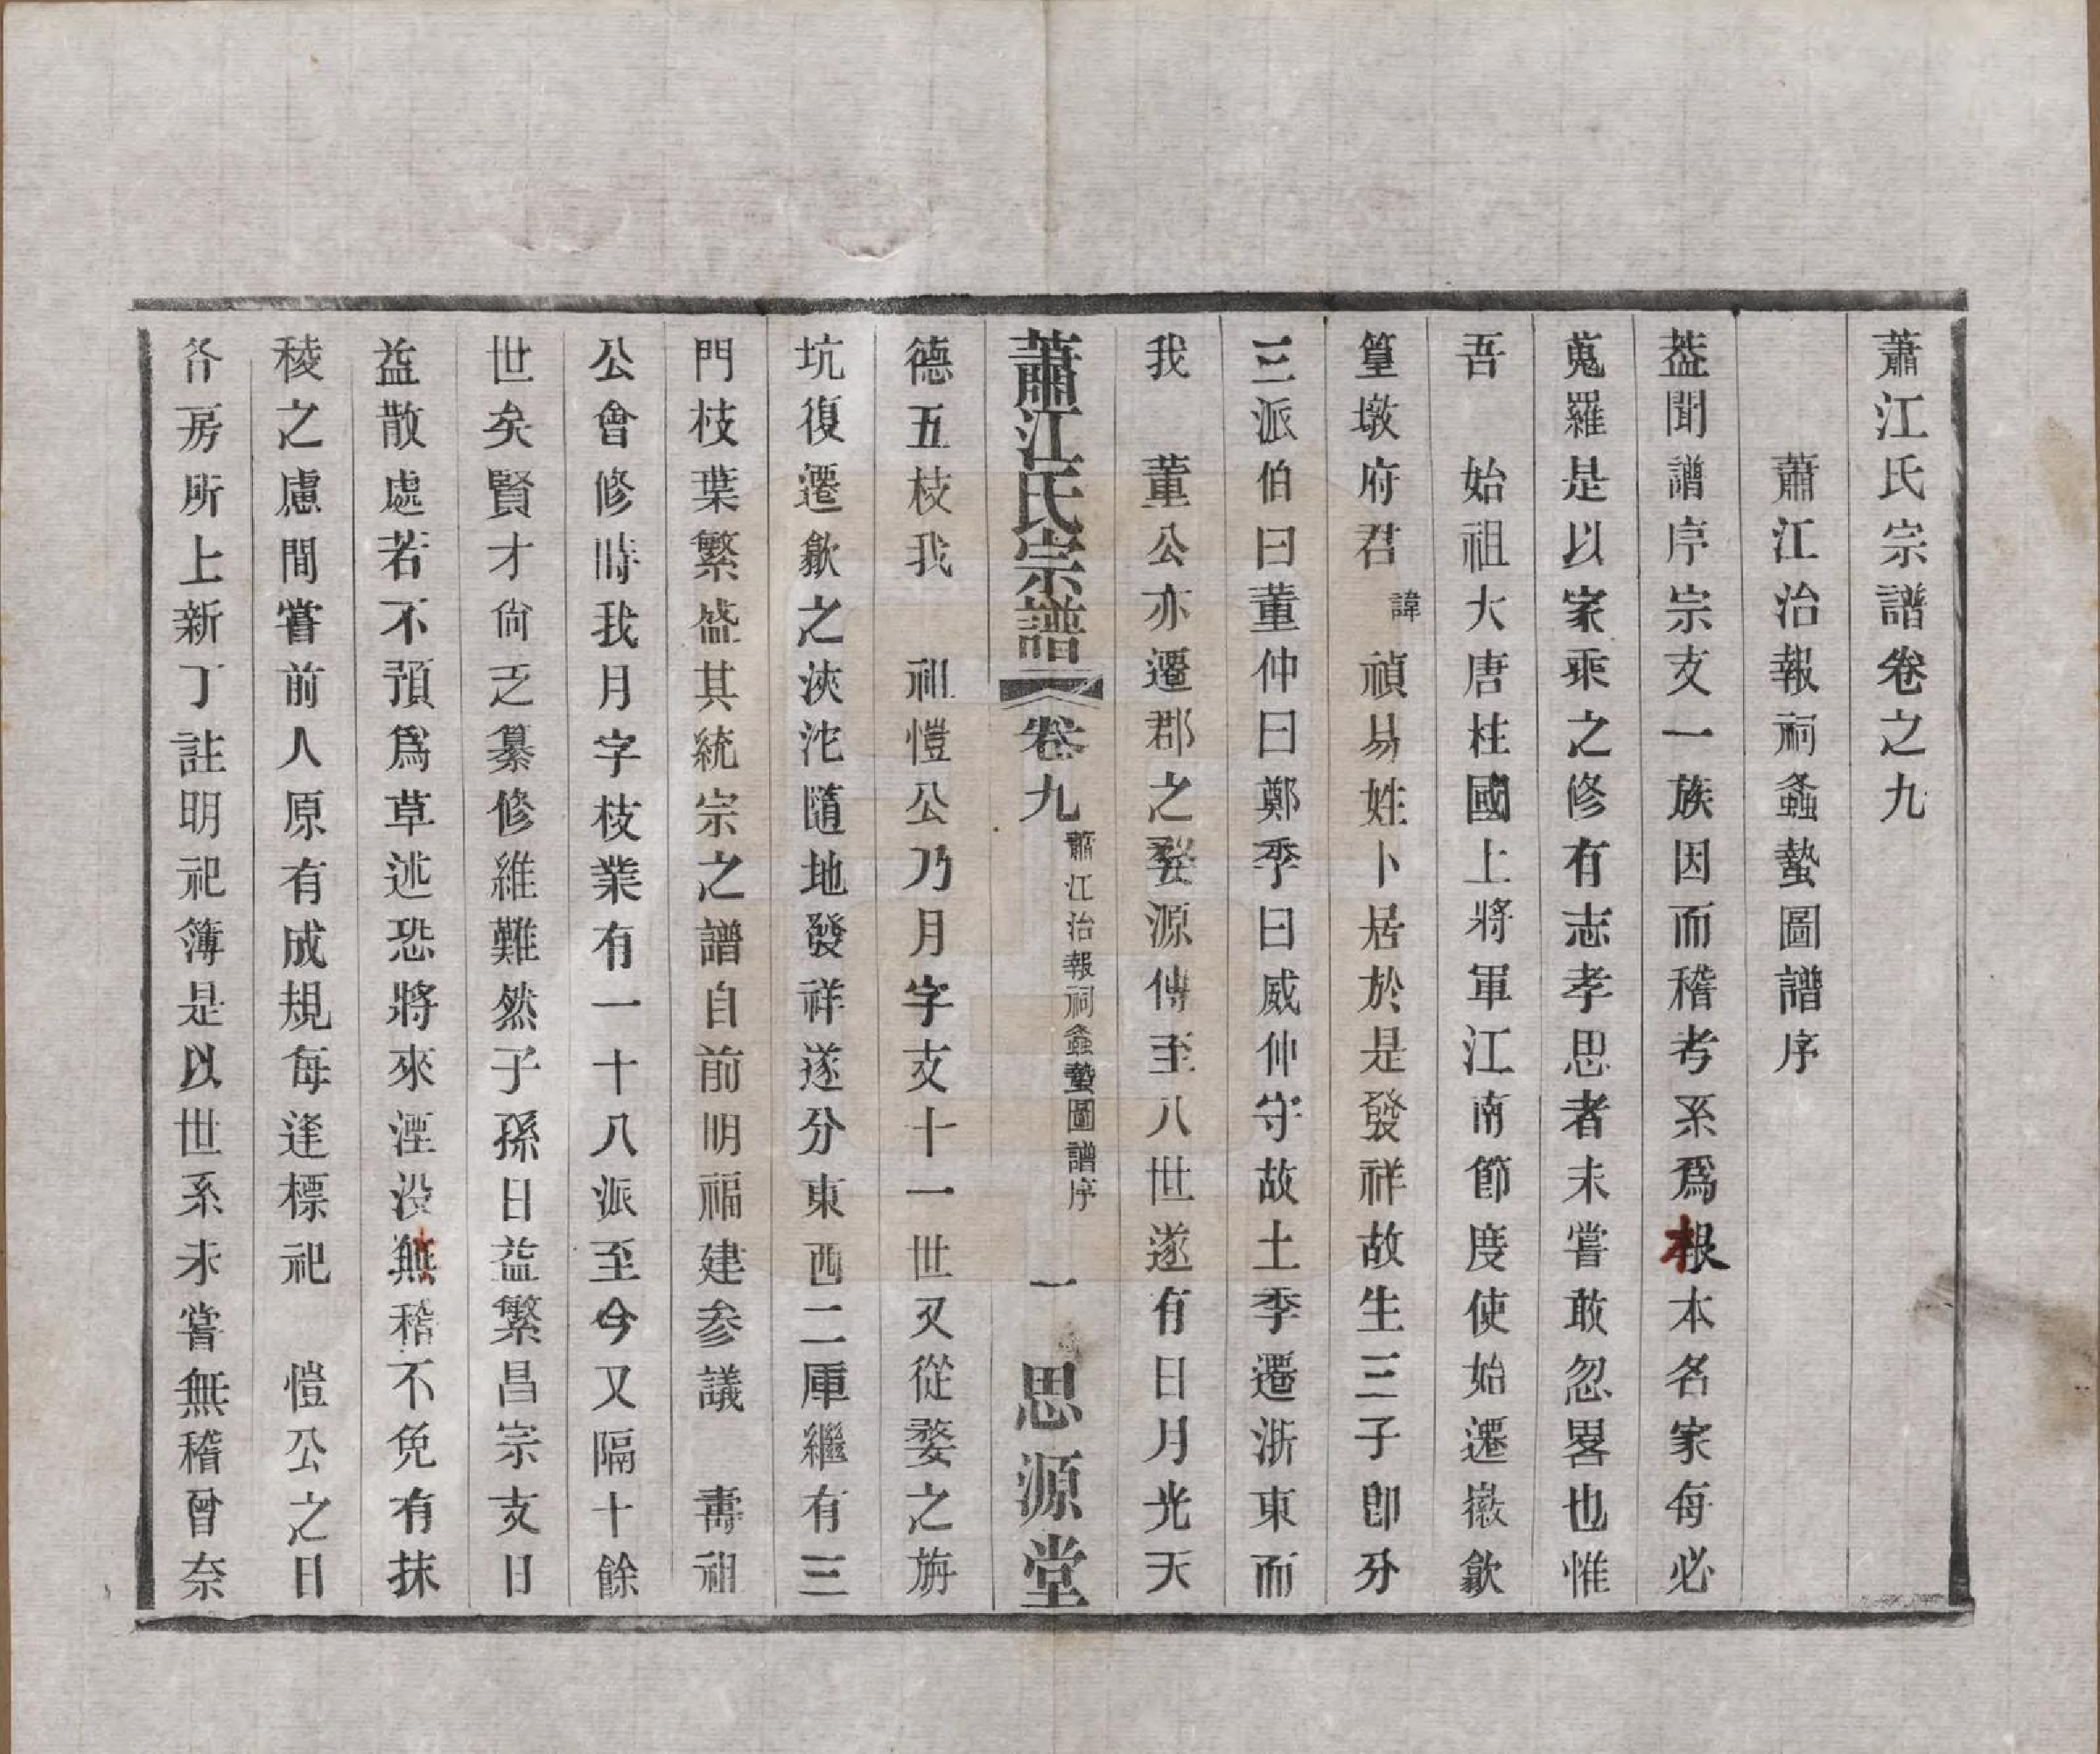 蕭江氏宗譜卷之九
蕭江治報祠螽蟄圖譜序
葢聞譜序宗支一族因而稽考系爲根本名家每必
蒐羅是以家乘之修有志孝思者未嘗敢忽畧也惟
吾 始祖大唐柱國上將軍江南節度使始遷徽歙
篁墩府君 諱 禎易姓卜居於是發祥故生三子卽分
三派伯曰董仲曰鄭季曰威仲守故土季遷浙東而
我 董公亦遷郡之婺源傳至八世遂有日月光天
蕭江氏宗譜 卷九 蕭江治報祠螽蟄圖譜序 一 思源堂
德五枝我 祖愷公乃月字支十一世又從婺之旃
坑復遷歙之浹沱隨地發祥遂分東西二厙繼有三
門枝葉繁盛其統宗之譜自前明福建参議 壽祖
公會修時我月字枝業有一十八派至今又隔十餘
世矣賢才尙乏纂修維難然子孫日益繁昌宗支日
益散處若不預爲草述恐將來湮没無稽不免有抹
稜之慮間嘗前人原有成規每逢標祀 愷公之日
各房所上新丁註明祀簿是以世系未嘗無稽曾奈
本